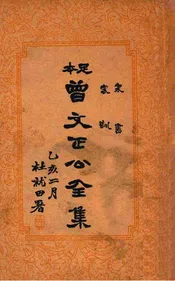 足本
家書
家訓
曾文正公全集
乙亥二月
杜就田署